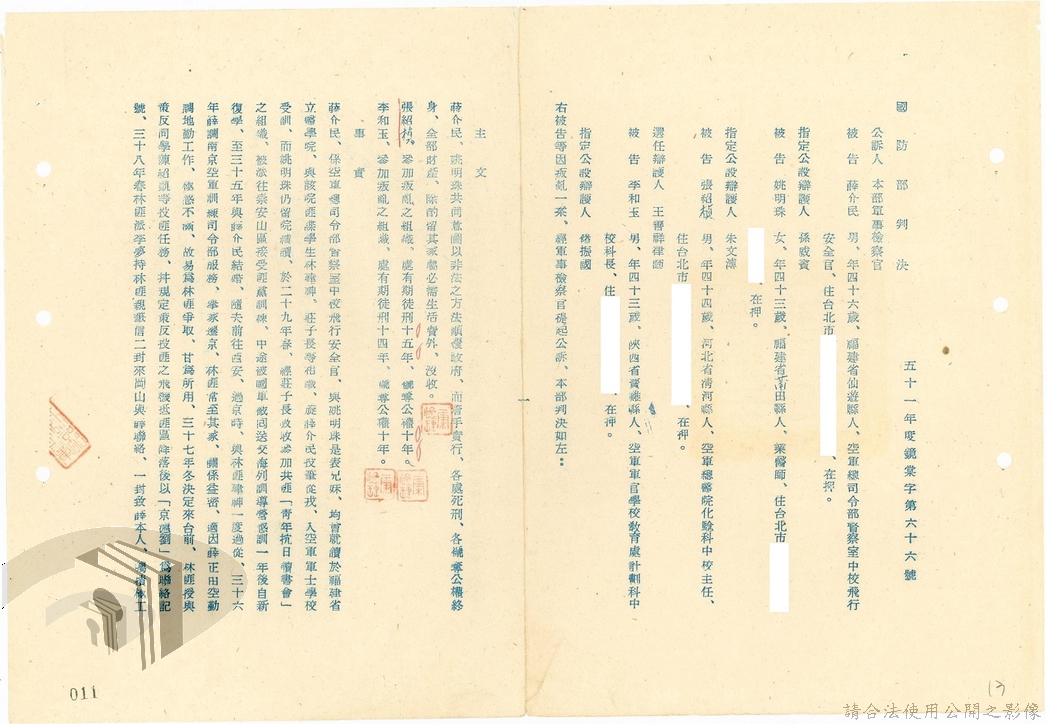 國防部判決
五十一年度鏡棠字第六十六號
公訴人 本部軍事檢察官
被告 薛介民 男、年四十六歲、福建省仙遊縣人、空軍總司令部督察室中校飛行
安全官、住台北市 、在押。
指定公設辯護人 孫威資
被告 姚明珠 女、年四十三歲、福建省莆田縣人、藥醫師、住台北市
、在押。
指定公設辯護人 朱文溥
被告 張紹楨 男、年四十四歲、河北省清河縣人、空軍總醫院化驗科中校主任、
住台北市 、在押。
選任辯護人 王善祥律師
被告 李和玉 男、年四十三歲、陝西省寶雞縣人、空軍軍官學校教育處計劃科中
校科長、住 、在押。
指定公設辯護人 褚振國
右被告等因叛亂一案、經軍事檢察官提起公訴、本部判決如左:
一
主文
薛介民、姚明珠共同意圖以非法之方法顛覆政府、而著手實行、各處死刑、各褫奪公權終
身、全部財產、除酌留其家屬必需生活費外、沒收。
張紹楨、參加叛亂之組織、處有期徒刑十五年、褫奪公權十年。
李和玉、參加叛亂之組織、處有期徒刑十四年、褫奪公權十年。
事實
薛介民、係空軍總司令部督察室中校飛行安全官、與姚明珠是表兄妹、均曾就讀於福建省
立醫學院、與該院匪諜學生林、莊子長等相識、旋薛介民投筆從戎、入空軍軍士學校
受訓、而姚明珠仍留院續讀、於二十九年春、經莊子長吸收參加共匪「青年抗日讀書會」
之組織、被派往崇安山區接受匪黨訓練、中途被國軍截回送交海列訓導營感訓一年後自新
復學、至三十五年與薛介民結婚、隨夫前往西安、過京時、與林匪一度過從、三十六
年薛調南京空軍訓練司令部服務、舉家遷京、林匪常至其家、關係益密、適因薛正由空勤
調地勤工作、情緒不滿、故易為林匪爭取、甘為所用、三十七年冬決定來台前、林匪授與
策反同學陳紹凱等投匪任務、并規定策反投匪之飛機返匪區降落後以「京滬劉」為聯絡記
號、三十八年春林匪派李夢持林匪親筆信二封來岡山與薛聯絡、一封致薛本人、囑積極工
011
請合法使用公開之影像